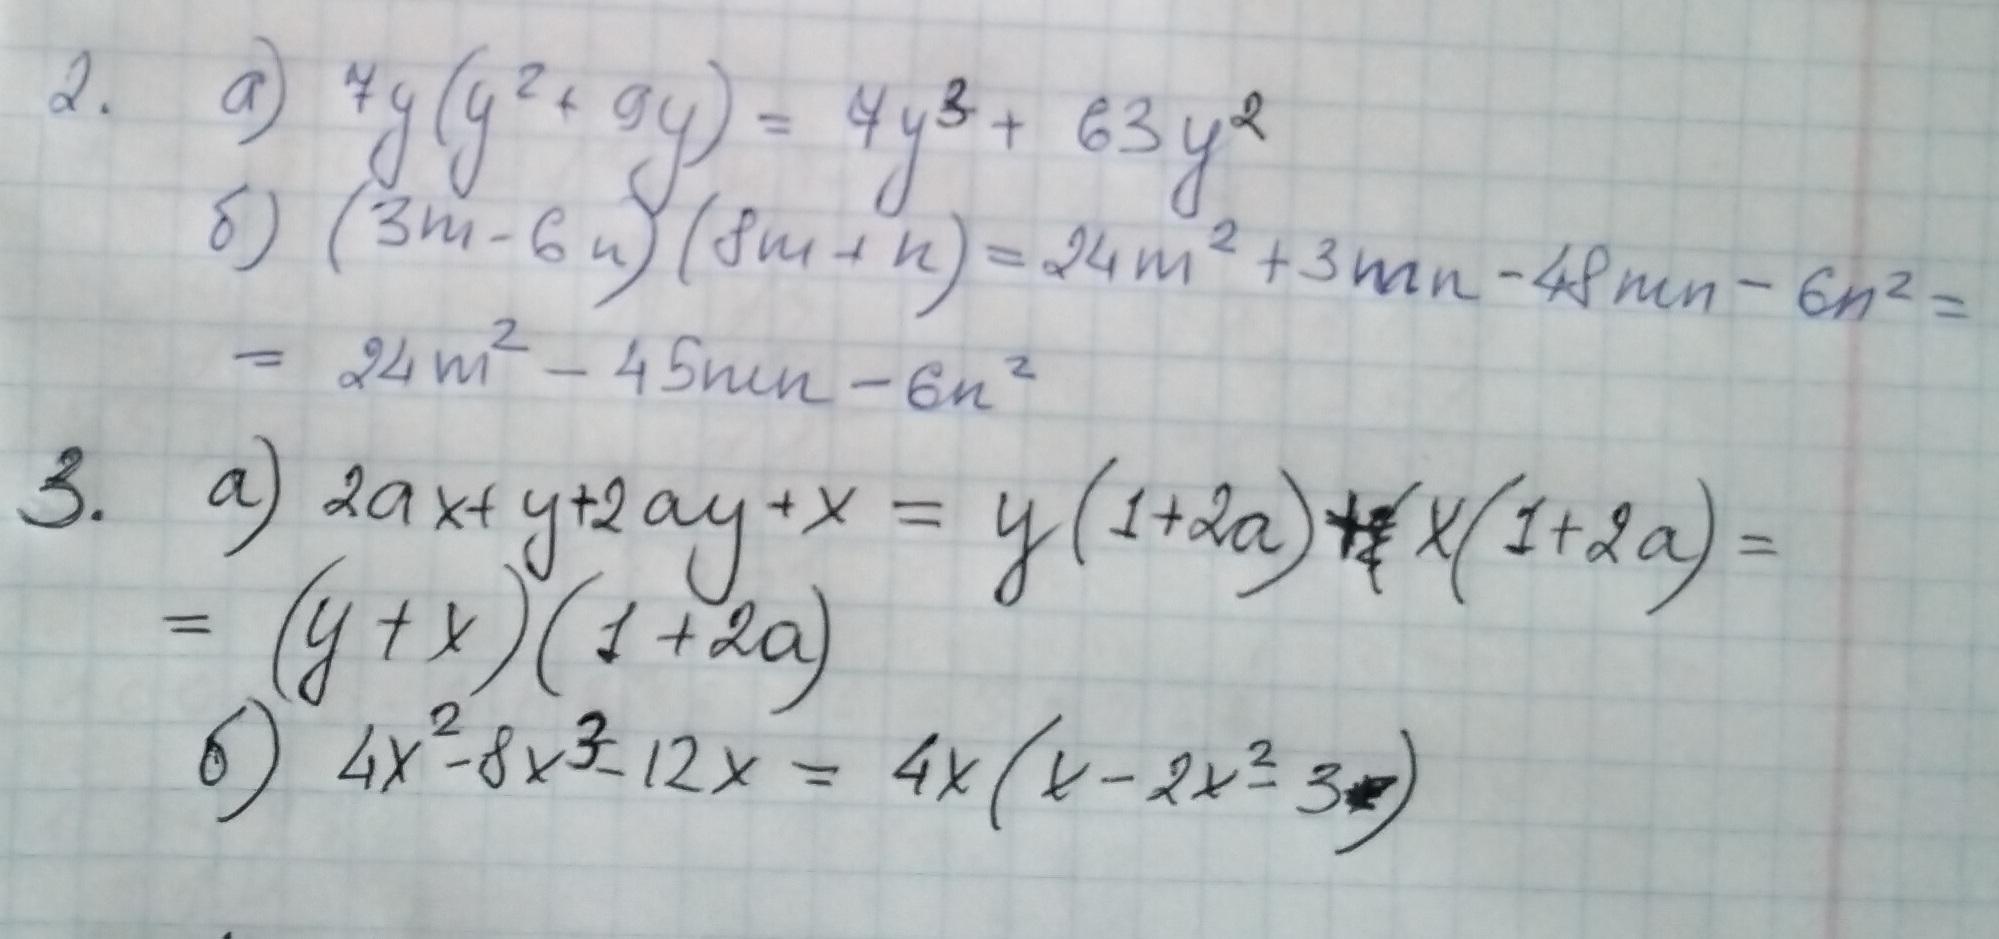 2. а) 7y(y² + 9y) = 7y³ + 63y²
б) (3m - 6n)(8m + n) = 24m² + 3mn - 48mn - 6n² =
= 24m² - 45mn - 6n²
3. а) 2ax + y + 2ay + x = y(1 + 2a) + x(1 + 2a) =
= (y + x)(1 + 2a)
б) 4x² - 8x³ - 12x = 4x(x - 2x² - 3)